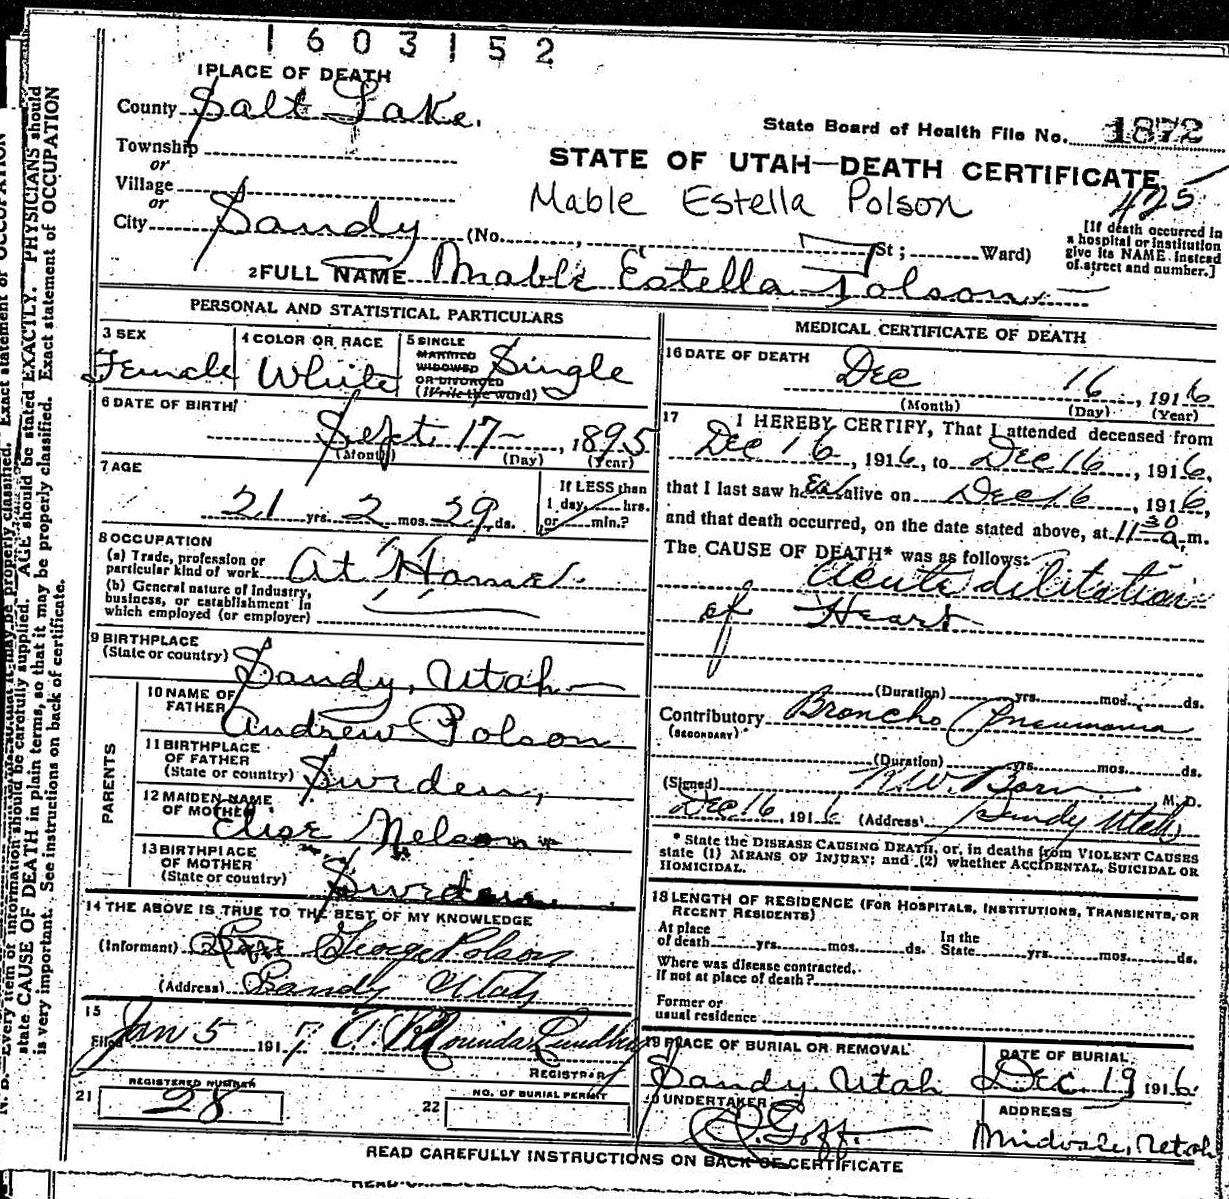 1603152
1 PLACE OF DEATH
County Salt Lake.
State Board of Health File No. 1872
Township
or
STATE OF UTAH—DEATH CERTIFICATE
Village
or
Mable Estella Polson
475
City Sandy (No. , St ; Ward)
[If death occurred in
a hospital or institution
give its NAME instead
of street and number.]
2 FULL NAME Mable Estella Polson
PERSONAL AND STATISTICAL PARTICULARS
3 SEX
Female
4 COLOR OR RACE
White
5 SINGLE
MARRIED
WIDOWED
OR DIVORCED
(Write the word)
Single
6 DATE OF BIRTH
Sept. 17 , 1895
(Month) (Day) (Year)
7 AGE
21 yrs. 2 mos. 29 ds.
If LESS than
1 day, hrs.
or min.?
8 OCCUPATION
(a) Trade, profession or
particular kind of work At Home
(b) General nature of Industry,
business, or establishment in
which employed (or employer)
9 BIRTHPLACE
(State or country) Sandy, Utah
PARENTS
10 NAME OF
FATHER Andrew Polson
11 BIRTHPLACE
OF FATHER
(State or country) Sweden,
12 MAIDEN NAME
OF MOTHER Nelson
13 BIRTHPLACE
OF MOTHER
(State or country) Sweden
14 THE ABOVE IS TRUE TO THE BEST OF MY KNOWLEDGE
(Informant) George Polson
(Address) Sandy Utah
15
Filed Jan 5 1917
REGISTRAR
21 REGISTERED NUMBER
28
22 NO. OF BURIAL PERMIT
MEDICAL CERTIFICATE OF DEATH
16 DATE OF DEATH
Dec 16 , 1916
(Month) (Day) (Year)
17 I HEREBY CERTIFY, That I attended deceased from
Dec 16 , 1916, to Dec 16 , 1916,
that I last saw her alive on Dec 16 , 1916,
and that death occurred, on the date stated above, at 11 30 a.m.
The CAUSE OF DEATH* was as follows:
acute dilitation
of Heart
(Duration) yrs. mos. ds.
Contributory Broncho Pneumonia
(SECONDARY)
(Duration) yrs. mos. ds.
(Signed) M. D.
Dec 16, 1916 (Address) Sandy Utah
* State the DISEASE CAUSING DEATH, or, in deaths from VIOLENT CAUSES
state (1) MEANS OF INJURY; and (2) whether ACCIDENTAL, SUICIDAL OR
HOMICIDAL.
18 LENGTH OF RESIDENCE (FOR HOSPITALS, INSTITUTIONS, TRANSIENTS, OR
RECENT RESIDENTS)
At place
of death yrs. mos. ds.
In the
State yrs. mos. ds.
Where was disease contracted,
if not at place of death?
Former or
usual residence
19 PLACE OF BURIAL OR REMOVAL
Sandy, Utah
DATE OF BURIAL
Dec 19 1916
20 UNDERTAKER
Goff.
ADDRESS
Midvale, Utah
READ CAREFULLY INSTRUCTIONS ON BACK OF CERTIFICATE
N. B.—Every item of information should be carefully supplied. AGE should be stated EXACTLY. PHYSICIANS should
state CAUSE OF DEATH in plain terms, so that it may be properly classified. Exact statement of OCCUPATION
is very important. See instructions on back of certificate.